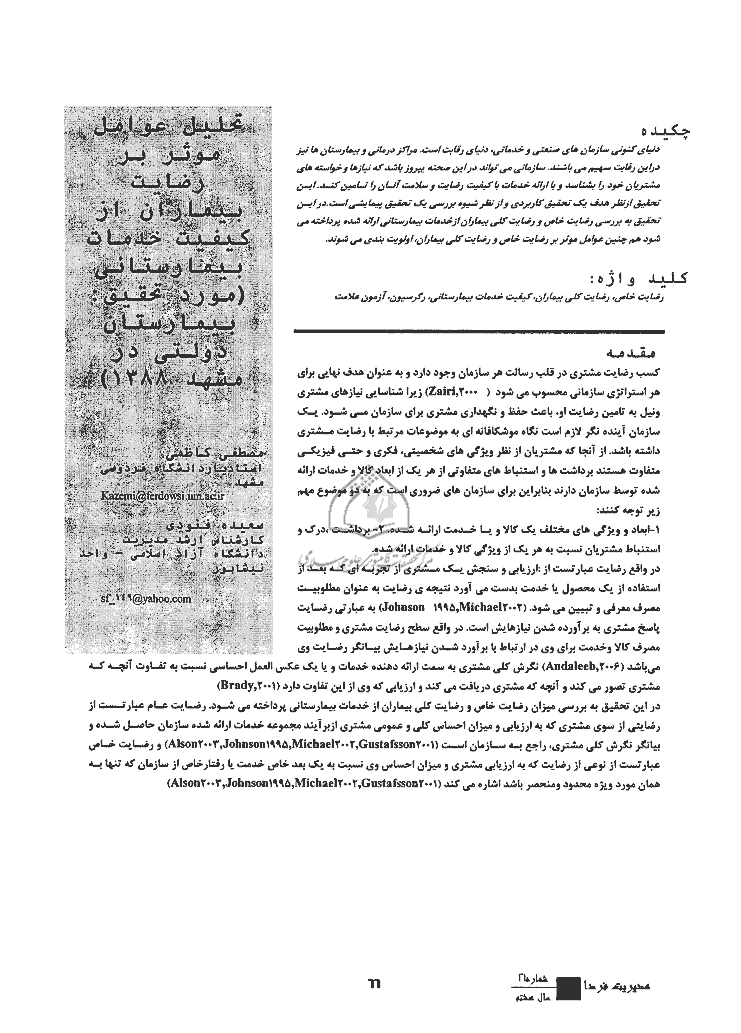 تحلیل عوامل
موثر بر
رضایت
بیماران از
کیفیت خدمات
بیمارستانی
(مورد تحقیق:
بیمارستان
دولتی در
مشهد ۱۳۸۸)
مصطفی کاظمی
استادیار دانشگاه فردوسی
مشهد
Kazemi@ferdowsi.um.ac.ir
سعیده فنودی
کارشناس ارشد مدیریت
دانشگاه آزاد اسلامی – واحد
نیشابور
sf_۱۴۹@yahoo.com
چکیده
دنیای کنونی سازمان های صنعتی و خدماتی، دنیای رقابت است. مراکز درمانی و بیمارستان ها نیز
دراین رقابت سهیم می باشند. سازمانی می تواند در این صحنه پیروز باشد که نیازها و خواسته های
مشتریان خود را بشناسد و با ارائه خدمات با کیفیت رضایت و سلامت آنسان را تسامین کنسد. ایسن
تحقیق ازنظر هدف یک تحقیق کاربردی و از نظر شیوه بررسی یک تحقیق پیمایشی است. در ایسن
تحقیق به بررسی رضایت خاص و رضایت کلی بیماران ازخدمات بیمارستانی ارائه شده پرداخته می
شود هم چنین عوامل موثر بر رضایت خاص و رضایت کلی بیماران، اولویت بندی می شوند.
کلید واژه:
رضایت خاص، رضایت کلی بیماران، کیفیت خدمات بیمارستانی، رگرسیون، آزمون علامت
مقدمه
کسب رضایت مشتری در قلب رسالت هر سازمان وجود دارد و به عنوان هدف نهایی برای
هر استراتژی سازمانی محسوب می شود ( Zairi,۲۰۰۰) زیرا شناسایی نیازهای مشتری
ونیل به تامین رضایت او، باعث حفظ و نگهداری مشتری برای سازمان مـی شـود. یـک
سازمان آینده نگر لازم است نگاه موشکافانه ای به موضوعات مرتبط با رضایت مـشتری
داشته باشد. از آنجا که مشتریان از نظر ویژگی های شخصیتی، فکری و حتـی فیزیکـی
متفاوت هستند برداشت ها و استنباط های متفاوتی از هر یک از ابعاد کالا و خدمات ارائه
شده توسط سازمان دارند بنابراین برای سازمان های ضروری است که به دو موضوع مهم
زیر توجه کنند:
۱-ابعاد و ویژگی های مختلف یک کالا و یـا خـدمت ارائـه شـده. ۲- برداشت ،درک و
استنباط مشتریان نسبت به هر یک از ویژگی کالا و خدمات ارائه شده.
در واقع رضایت عبارتست از :ارزیابی و سنجش یـسک مـشتری از تجربـه ای کـه بعـد از
استفاده از یک محصول یا خدمت بدست می آورد نتیجه ی رضایت به عنوان مطلوبیـت
مصرف معرفی و تبیین می شود. (Johnson ۱۹۹۵,Michael۲۰۰۲) به عبارتی رضـایت
پاسخ مشتری به برآورده شدن نیازهایش است. در واقع سطح رضایت مشتری و مطلوبیت
مصرف کالا وخدمت برای وی در ارتباط با برآورد شـدن نیازهـایش بیـانگر رضـایت وی
می‌باشد (Andaleeb,۲۰۰۶) نگرش کلی مشتری به سمت ارائه دهنده خدمات و یا یک عکس العمل احساسی نسبت به تفـاوت آنچـه کـه
مشتری تصور می کند و آنچه که مشتری دریافت می کند و ارزیابی که وی از این تفاوت دارد (Brady,۲۰۰۱)
در این تحقیق به بررسی میزان رضایت خاص و رضایت کلی بیماران از خدمات بیمارستانی پرداخته می شود. رضـایت عـام عبارتـست از
رضایتی از سوی مشتری که به ارزیابی و میزان احساس کلی و عمومی مشتری ازبرآیند مجموعه خدمات ارائه شده سازمان حاصـل شـده و
بیانگر نگرش کلی مشتری، راجع بـه سـازمان اسـت (Alson۲۰۰۳,Johnson۱۹۹۵,Michael۲۰۰۲,Gustafsson۲۰۰۱) و رضـایت خـاص
عبارتست از نوعی از رضایت که به ارزیابی مشتری و میزان احساس وی نسبت به یک بعد خاص خدمت یا رفتارخاص از سازمان که تنها بـه
همان مورد ویژه محدود ومنحصر باشد اشاره می کند (Alson۲۰۰۳,Johnson۱۹۹۵,Michael۲۰۰۲,Gustafsson۲۰۰۱)
مدیریت فردا
سال هشتم